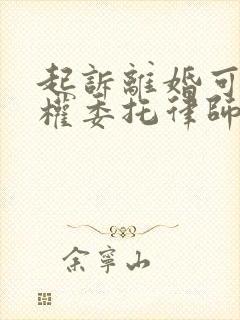 起訴離婚可
權委托律師
余寧山